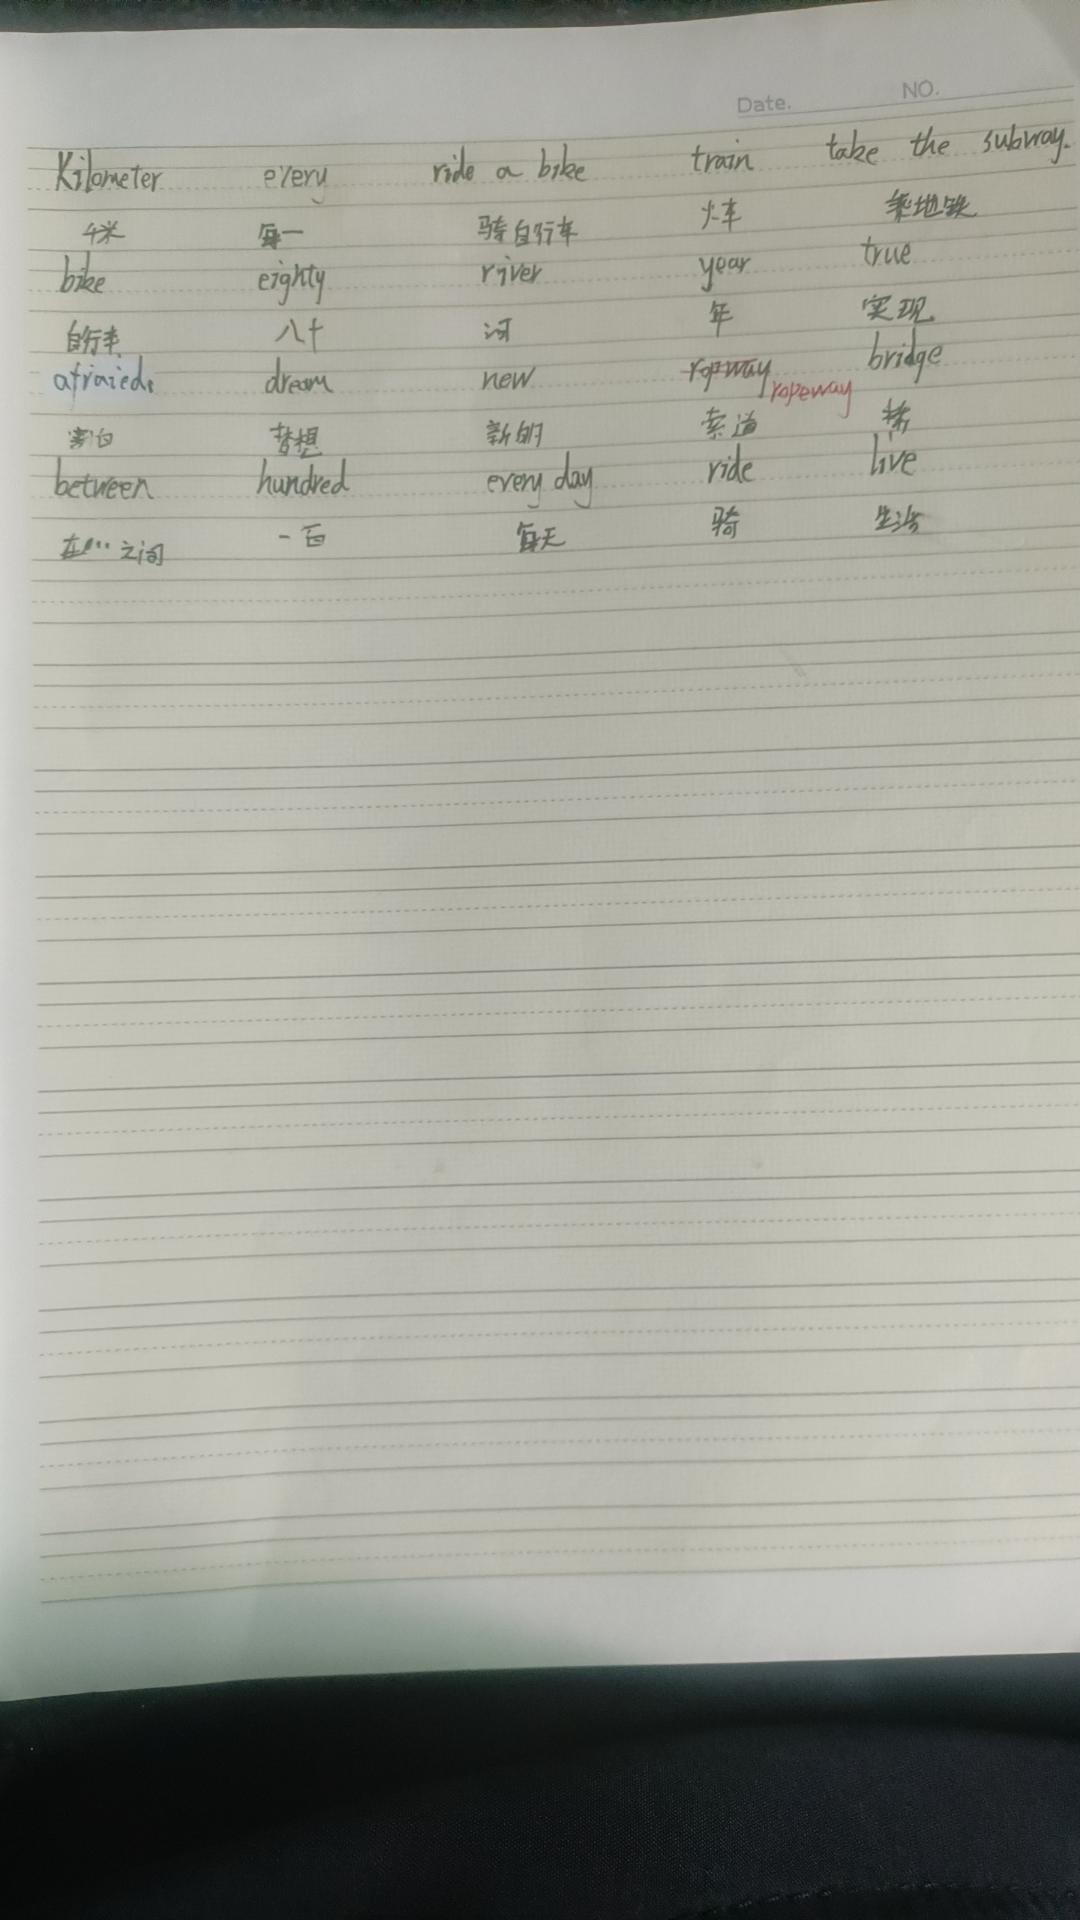 Date. NO.
Kilometer every ride a bike train take the subway.
千米 每一 骑自行车 火车 乘地铁
bike eighty river year true
自行车 八十 河 年 实现
afraied dream new ropway ropeway bridge
害怕 梦想 新的 索道 桥
between hundred every day ride live
在…之间 一百 每天 骑 生活